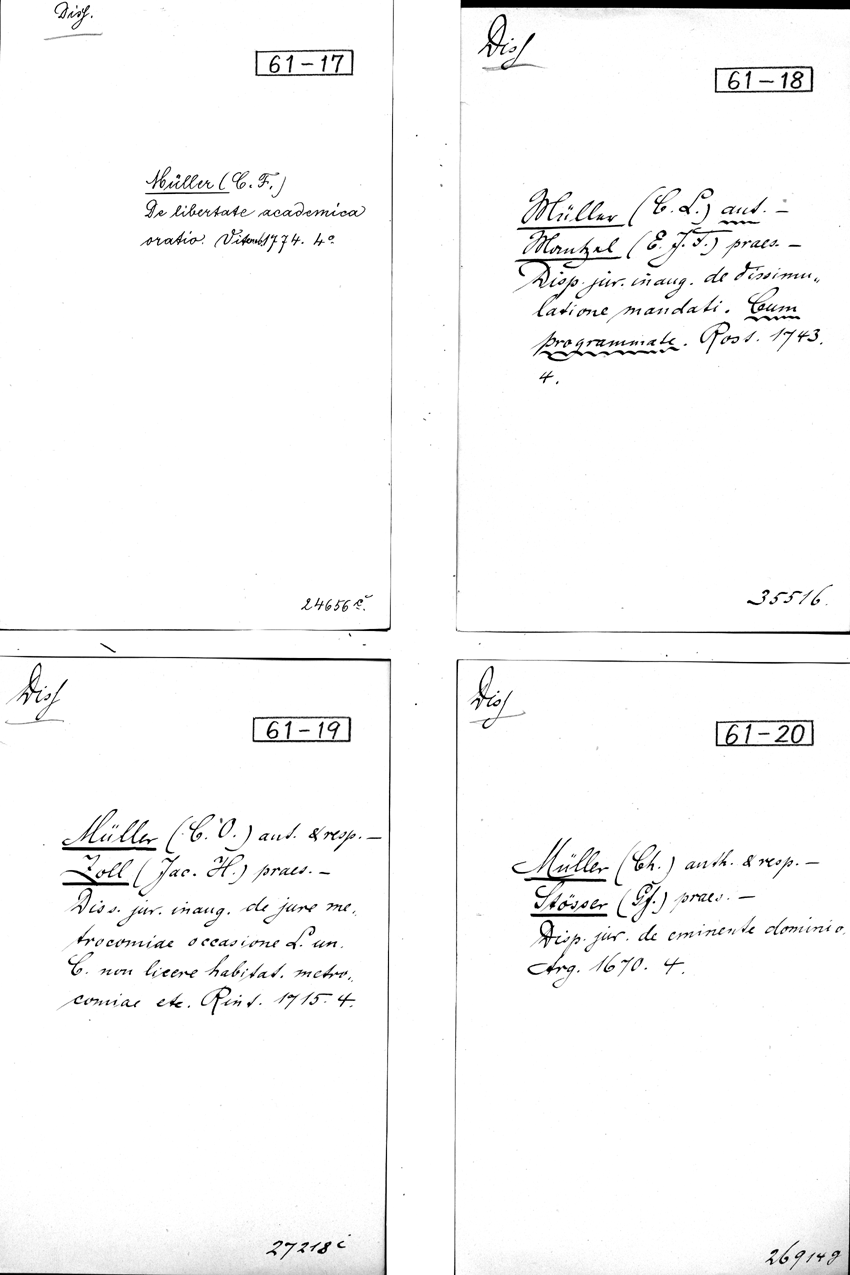 Diss.
61-17
Müller (C. F.)
De libertate academica
oratio. Vitemb 1774. 4o.
24656 c.
Diss
61-18
Müller (C. L.) aut. –
Mantzel (E. J. F.) praes. –
Disp. jur. inaug. de dissimu„
latione mandati. Cum
programmate. Ross. 1743.
4.
35516.
Diss
61-19
Müller (C. O.) aut. & resp. –
Zoll (Jac. H.) praes. –
Diss. jur. inaug. de jure me„
trocomiae occasione L. un.
C. non licere habitat. metro„
comiae etc. Rint. 1715. 4.
27218 i
Diss
61-20
Müller (Ch.) auth. & resp. –
Stösser (Gf.) praes. –
Disp. jur. de eminente dominio.
Arg. 1670. 4.